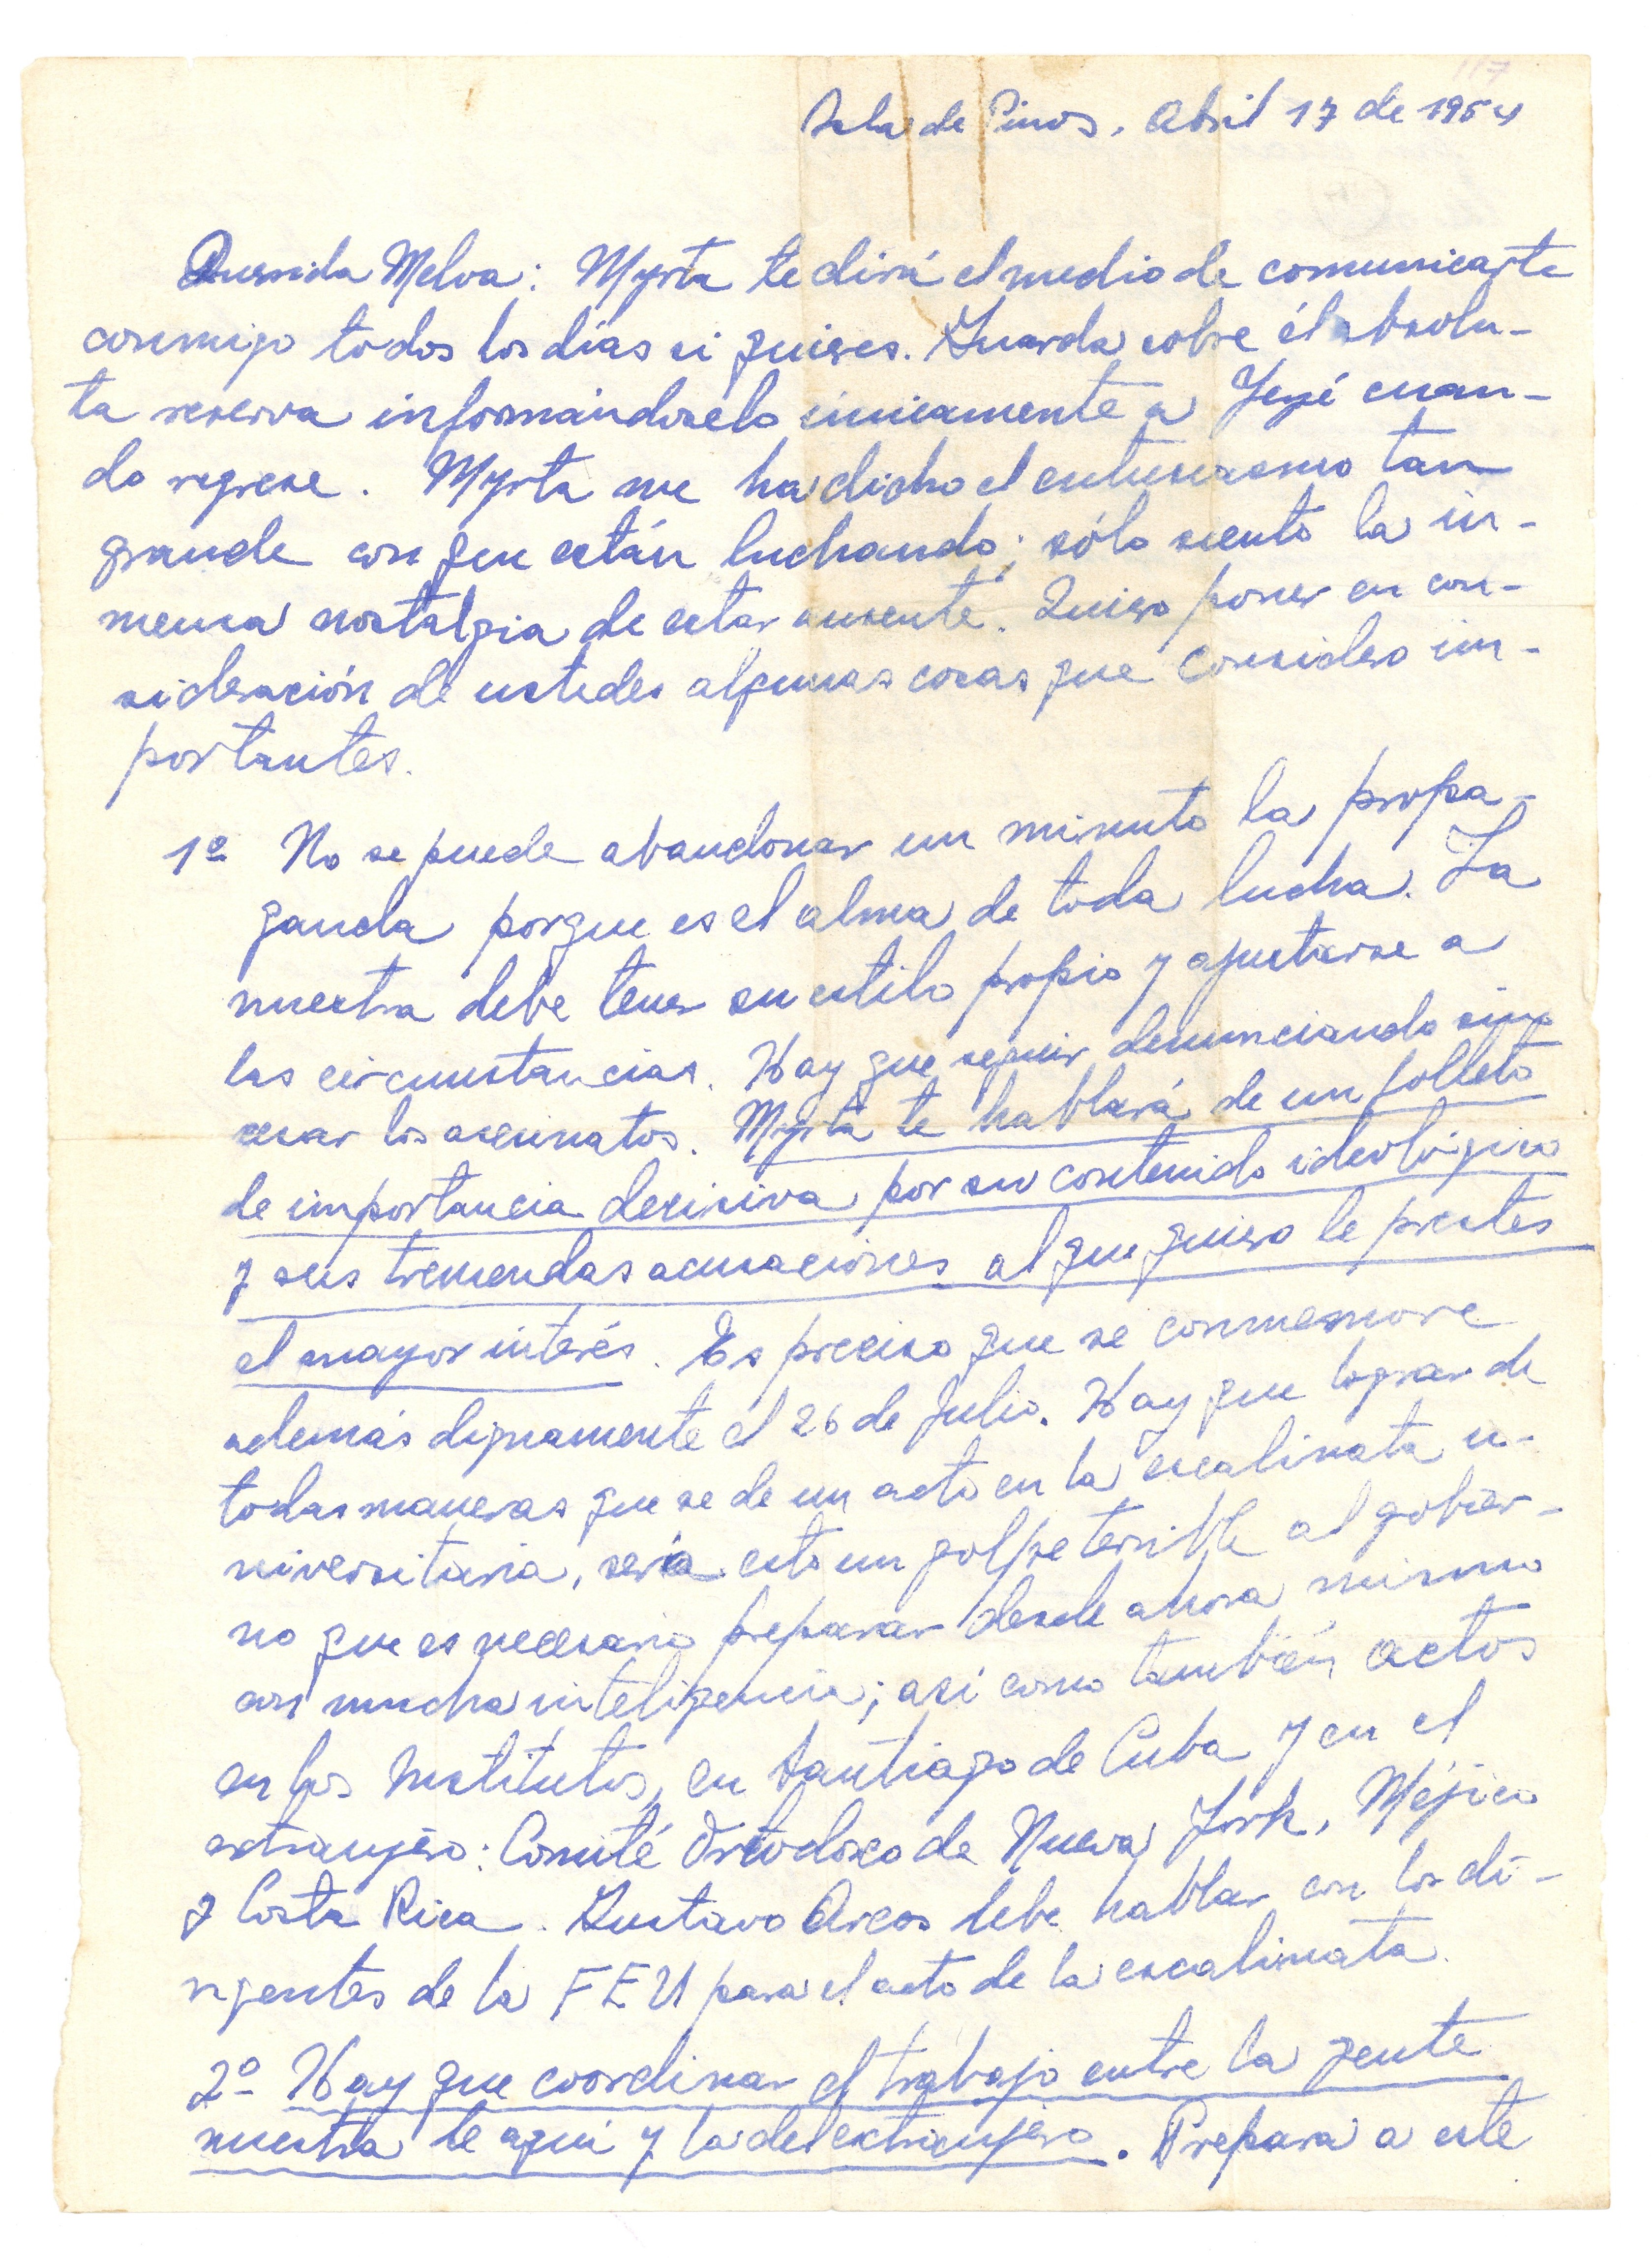 117
Isla de Pinos, Abril 17 de 1954
Querida Melva: Myrta te dirá el medio de comunicarte
conmigo todos los días si quieres. Guarda sobre él absolu-
ta reserva informándoselo únicamente a Yeyé cuan-
do regrese. Myrta me ha dicho el entusiasmo tan
grande con que están luchando; sólo siento la in-
mensa nostalgia de estar ausente. Quiero poner en con-
sideración de ustedes algunas cosas que considero im-
portantes.
1º No se puede abandonar un minuto la propa-
ganda porque es el alma de toda lucha. La
nuestra debe tener su estilo propio y ajustarse a
las circunstancias. Hay que seguir denunciando sin
cesar los asesinatos. Myrta te hablará de un folleto
de importancia decisiva por su contenido ideológico
y sus tremendas acusaciones al que quiero le prestes
el mayor interés. Es preciso que se conmemore
además dignamente el 26 de Julio. Hay que lograr de
todas maneras que se de un acto en la escalinata u-
niversitaria, sería esto un golpe terrible al gobier-
no que es necesario preparar desde ahora mismo
con mucha inteligencia; así como también actos
en los Institutos, en Santiago de Cuba y en el
extranjero: Comité Ortodoxo de Nueva York, Méjico
y Costa Rica. Gustavo Arcos debe hablar con los di-
rigentes de la FEU para el acto de la escalinata.
2º Hay que coordinar el trabajo entre la gente
nuestra de aquí y la del extranjero. Prepara a este